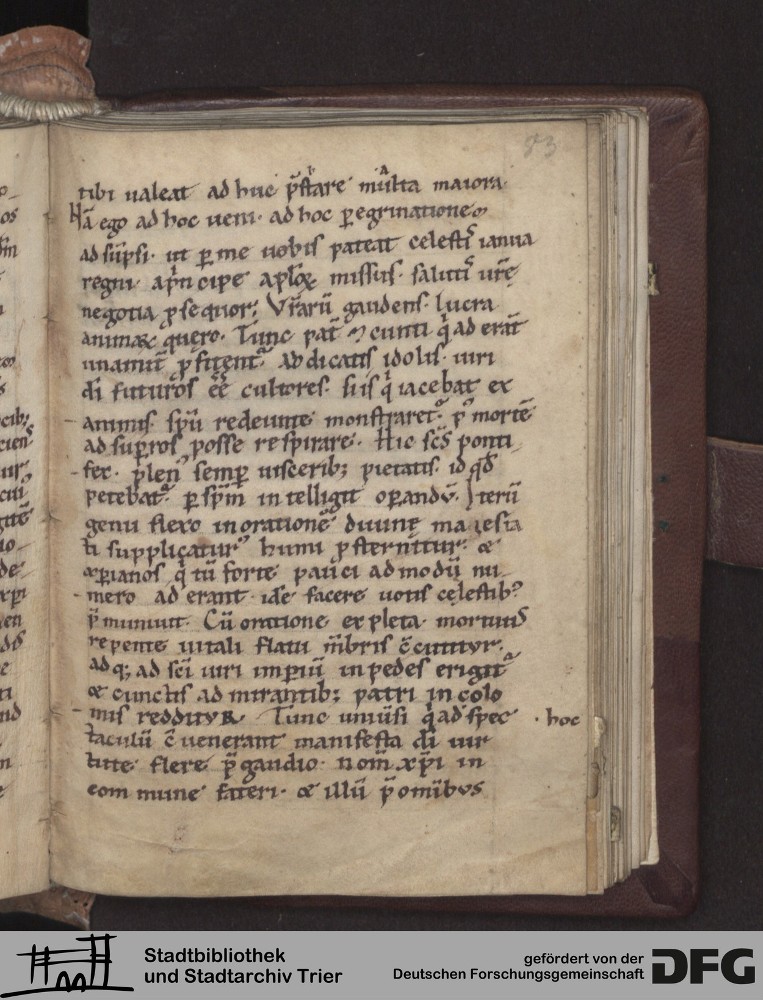 83
tibi ualeat ad huc p̄stare multa maiora.
Nā ego ad hoc ueni. ad hoc peregrinatione
ad sūpsi. ut ꝑ me uobis pateat celestis ianua
regni. a p̄ncipe aplōꝝ missus. saluti ur̄ę
negotia ꝓsequor; Vr̄arū gaudens lucra
animaꝝ quęro. Tunc cuncti qͥ ad erāt
unanimit̄ ꝓfitent᷑. Abdicatis idolis uiri
dī futuros eē cultores. si is qͥ iacebat ex
animis. spū redeunte monstraret᷑. p᷒ mortē
ad superos posse respirare. Hic scs̄ ponti
fex. plen᷒ semꝑ uisceribꝫ pietatis. id qd̄
petebat᷑ ꝑ spm̄ intelligit oꝑandū. Iterū
genu flexo in orationē diuinę maiesta
ti supplicatur᷒ humi ꝓsternitur. &
xp̄ianos qͥ tū forte pauci admodū nu
mero ad erant. idē facere uotis celestibꝫ
p̄muniuit. Cū oratione expleta mortuus
repente uitali flatu mēbris c̄cutitur.
adqꝫ ad sc̄i uiri imperiū in pedes erigit᷑
& cunctis ad mirantibꝫ patri incolo
mis redditur. Tunc uniūsi qͥ ad spec · hoc
taculū c̄uenerant manifesta dī uir
tute flere p̄ gaudio. nom̄ xp̄i in
commune fateri. & illū p̄ omībus
Stadtbibliothek
und Stadtarchiv Trier
gefördert von der
Deutschen Forschungsgemeinschaft
DFG